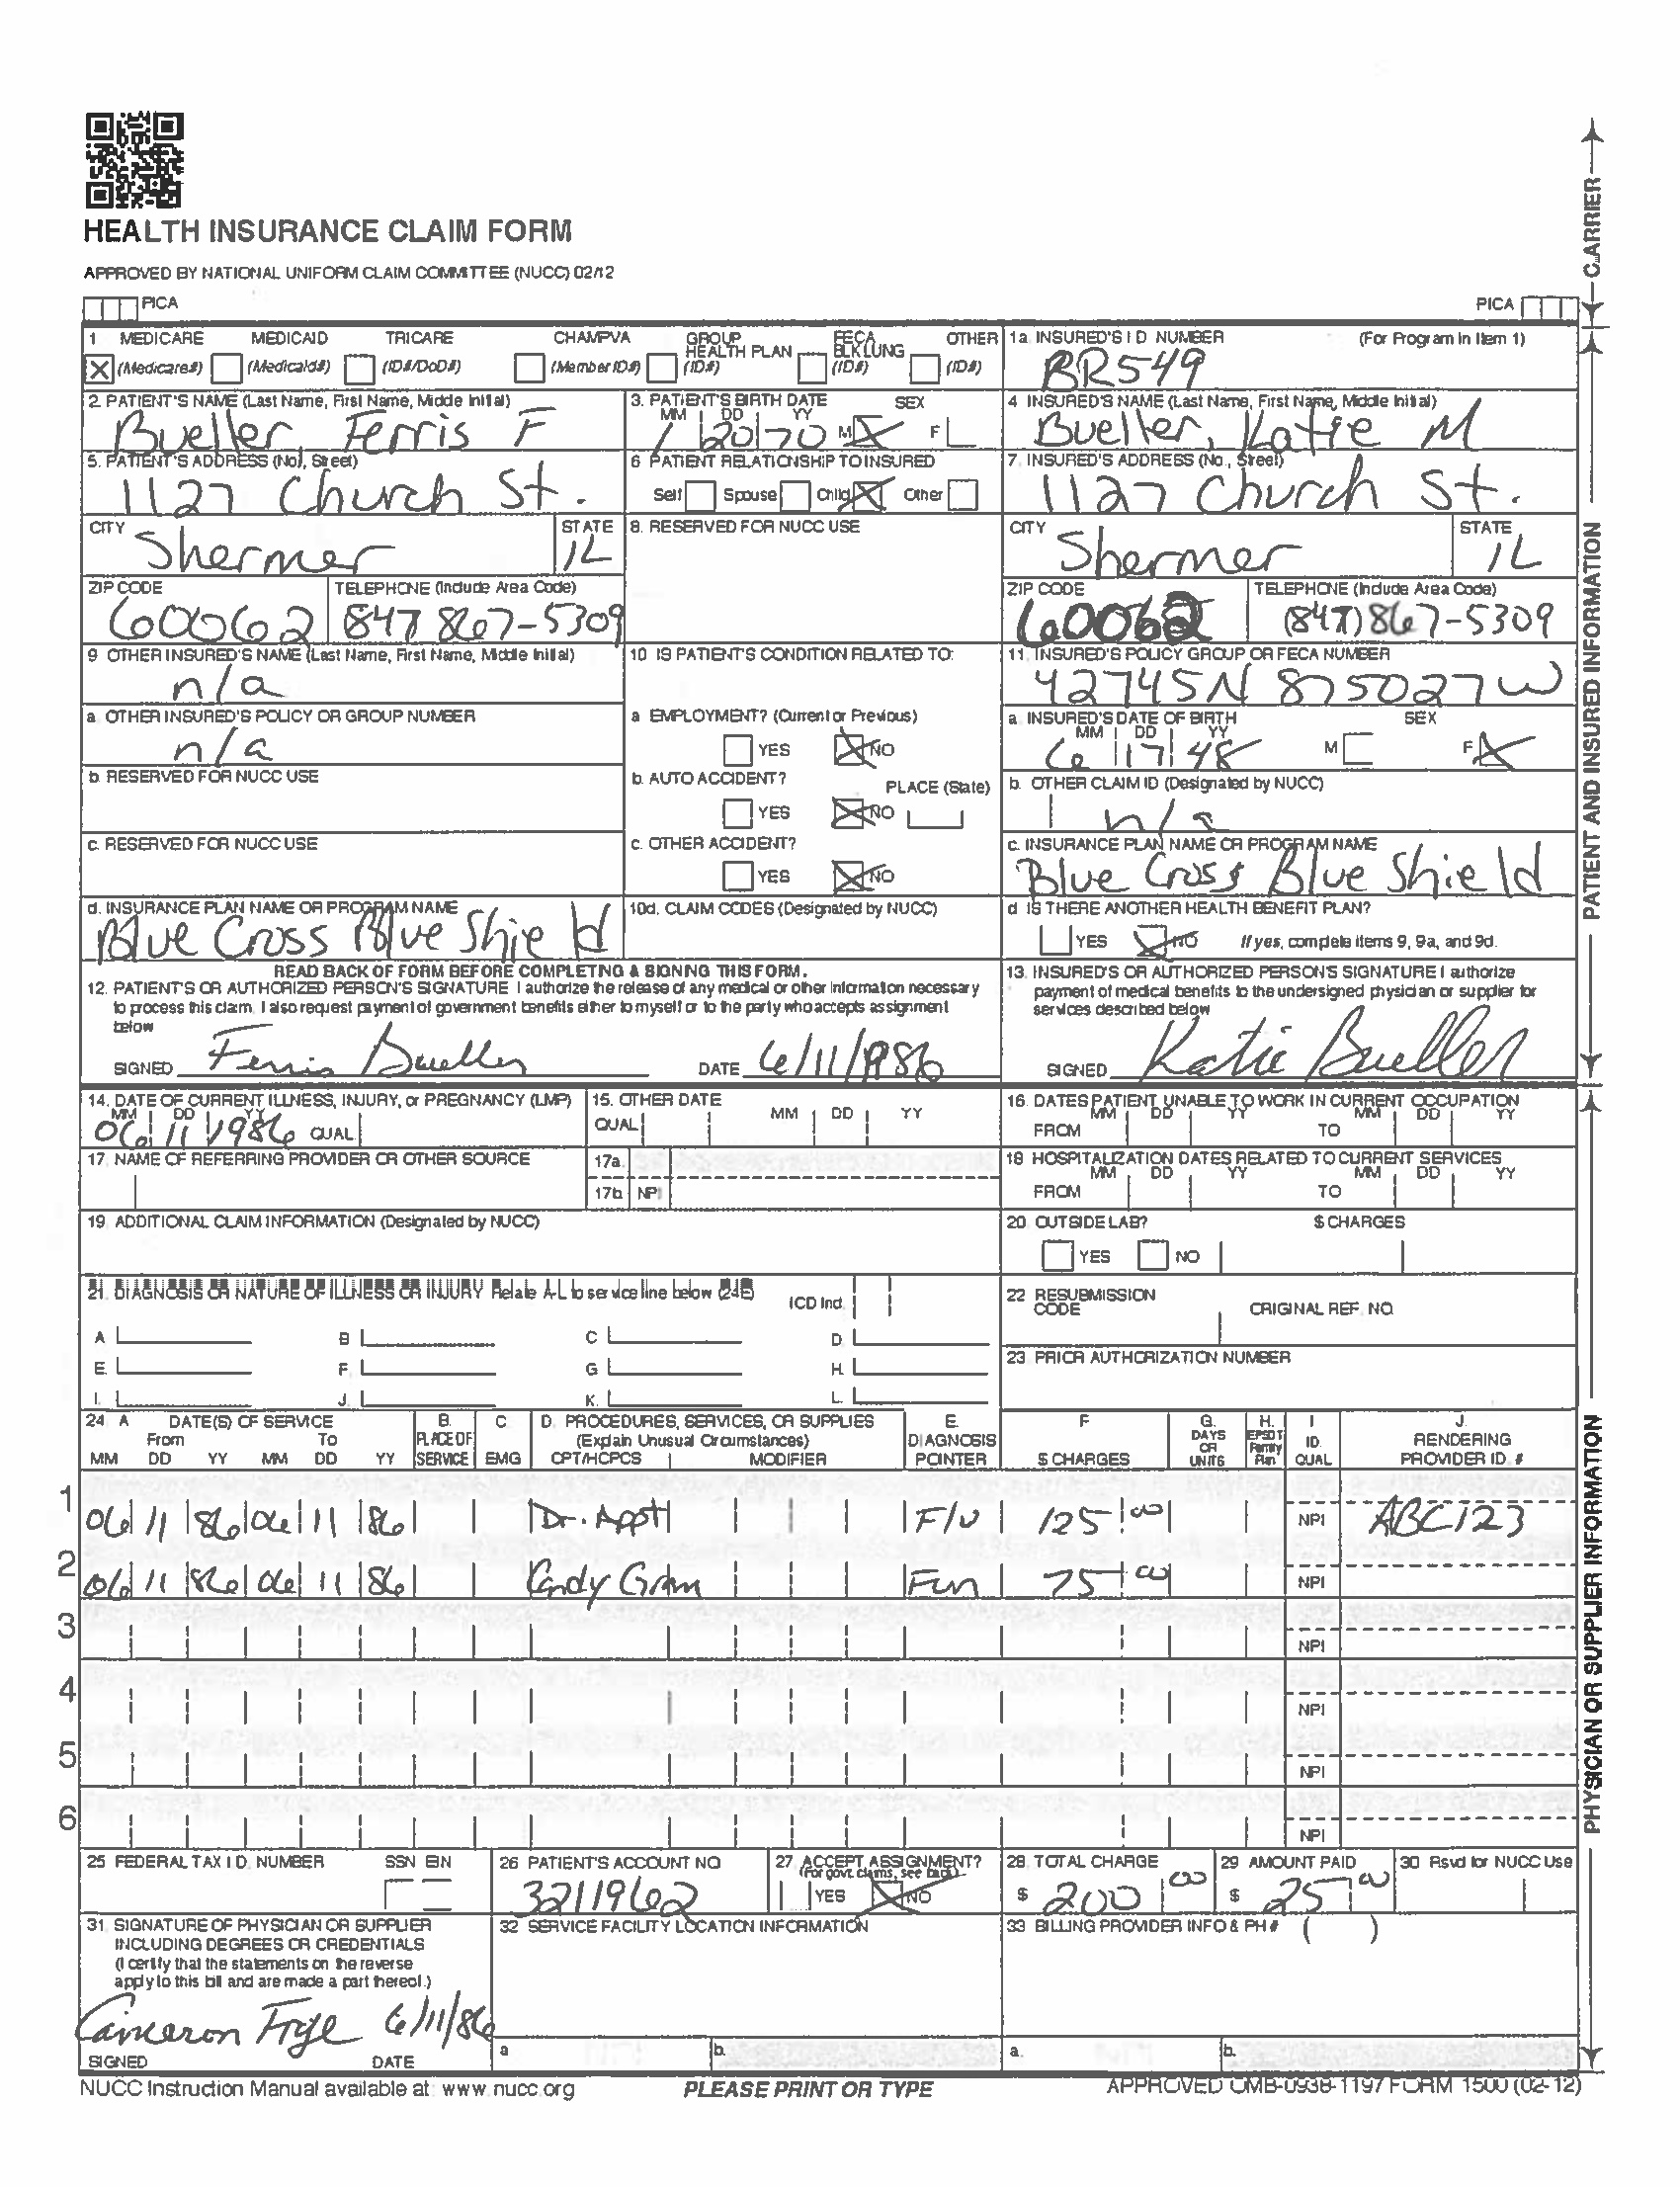 HEALTH INSURANCE CLAIM FORM
APPROVED BY NATIONAL UNIFORM CLAIM COMMITTEE (NUCC) 02/12
PICA
PICA
CARRIER
1 MEDICARE MEDICAID TRICARE CHAMPVA GROUP HEALTH PLAN FECA BLK LUNG OTHER
X (Medicare#) (Medicaid#) (ID#/DoD#) (Member ID#) (ID#) (ID#) (ID#)
1a INSURED'S I D NUMBER (For Program in Item 1)
BR549
2. PATIENT'S NAME (Last Name, First Name, Middle Initial)
Bueller, Ferris F
3. PATIENT'S BIRTH DATE SEX
MM DD YY
1 20 70 M X F
4 INSURED'S NAME (Last Name, First Name, Middle Initial)
Bueller, Katie M
5. PATIENT'S ADDRESS (No., Street)
1127 Church St.
6 PATIENT RELATIONSHIP TO INSURED
Self Spouse Child X Other
7. INSURED'S ADDRESS (No., Street)
1127 Church St.
CITY STATE
Shermer IL
8. RESERVED FOR NUCC USE
CITY STATE
Shermer IL
ZIP CODE TELEPHONE (Include Area Code)
60062 847 867-5309
ZIP CODE TELEPHONE (Include Area Code)
60062 (847) 867-5309
9 OTHER INSURED'S NAME (Last Name, First Name, Middle Initial)
n/a
10 IS PATIENT'S CONDITION RELATED TO:
11. INSURED'S POLICY GROUP OR FECA NUMBER
42745N 875027W
a. OTHER INSURED'S POLICY OR GROUP NUMBER
n/a
a EMPLOYMENT? (Current or Previous)
YES X NO
a. INSURED'S DATE OF BIRTH SEX
MM DD YY
6 17 48 M F X
b. RESERVED FOR NUCC USE
b. AUTO ACCIDENT? PLACE (State)
YES X NO
b. OTHER CLAIM ID (Designated by NUCC)
n/a
c. RESERVED FOR NUCC USE
c. OTHER ACCIDENT?
YES X NO
c. INSURANCE PLAN NAME OR PROGRAM NAME
Blue Cross Blue Shield
d. INSURANCE PLAN NAME OR PROGRAM NAME
Blue Cross Blue Shield
10d. CLAIM CODES (Designated by NUCC)
d IS THERE ANOTHER HEALTH BENEFIT PLAN?
YES X NO If yes, complete items 9, 9a, and 9d.
READ BACK OF FORM BEFORE COMPLETING & SIGNING THIS FORM.
12. PATIENT'S OR AUTHORIZED PERSON'S SIGNATURE I authorize the release of any medical or other information necessary
to process this claim. I also request payment of government benefits either to myself or to the party who accepts assignment
below
SIGNED Ferris Bueller DATE 6/11/1986
13. INSURED'S OR AUTHORIZED PERSON'S SIGNATURE I authorize
payment of medical benefits to the undersigned physician or supplier for
services described below
SIGNED Katie Bueller
PATIENT AND INSURED INFORMATION
14. DATE OF CURRENT ILLNESS, INJURY, or PREGNANCY (LMP)
MM DD YY
06 11 1986 QUAL
15. OTHER DATE
QUAL MM DD YY
16. DATES PATIENT UNABLE TO WORK IN CURRENT OCCUPATION
MM DD YY MM DD YY
FROM TO
17. NAME OF REFERRING PROVIDER OR OTHER SOURCE
17a.
17b. NPI
18 HOSPITALIZATION DATES RELATED TO CURRENT SERVICES
MM DD YY MM DD YY
FROM TO
19. ADDITIONAL CLAIM INFORMATION (Designated by NUCC)
20. OUTSIDE LAB? $ CHARGES
YES NO
21. DIAGNOSIS OR NATURE OF ILLNESS OR INJURY Relate A-L to service line below (24E) ICD Ind.
A B C D.
E. F. G H.
I. J. K. L.
22 RESUBMISSION CODE ORIGINAL REF. NO.
23. PRIOR AUTHORIZATION NUMBER
24. A DATE(S) OF SERVICE B. C D. PROCEDURES, SERVICES, OR SUPPLIES E. F G. H. I J.
From To PLACE OF (Explain Unusual Circumstances) DIAGNOSIS DAYS OR EPSDT Family ID. RENDERING
MM DD YY MM DD YY SERVICE EMG CPT/HCPCS MODIFIER POINTER $ CHARGES UNITS Plan QUAL PROVIDER ID. #
1 06 11 86 06 11 86 Dr. Appt F/U 125 00 NPI ABC123
2 06 11 86 06 11 86 Candy Gram Fun 75 00 NPI
3 NPI
4 NPI
5 NPI
6 NPI
25 FEDERAL TAX I D. NUMBER SSN EIN
26 PATIENT'S ACCOUNT NO
3211962
27. ACCEPT ASSIGNMENT?
(For govt. claims, see back)
YES X NO
28. TOTAL CHARGE
$ 200 00
29 AMOUNT PAID
$ 25 00
30 Rsvd for NUCC Use
31. SIGNATURE OF PHYSICIAN OR SUPPLIER
INCLUDING DEGREES OR CREDENTIALS
(I certify that the statements on the reverse
apply to this bill and are made a part thereof.)
Cameron Frye 6/11/86
SIGNED DATE
32 SERVICE FACILITY LOCATION INFORMATION
a b.
33 BILLING PROVIDER INFO & PH # ( )
a. b.
PHYSICIAN OR SUPPLIER INFORMATION
NUCC Instruction Manual available at: www.nucc.org
PLEASE PRINT OR TYPE
APPROVED OMB-0938-1197 FORM 1500 (02-12)